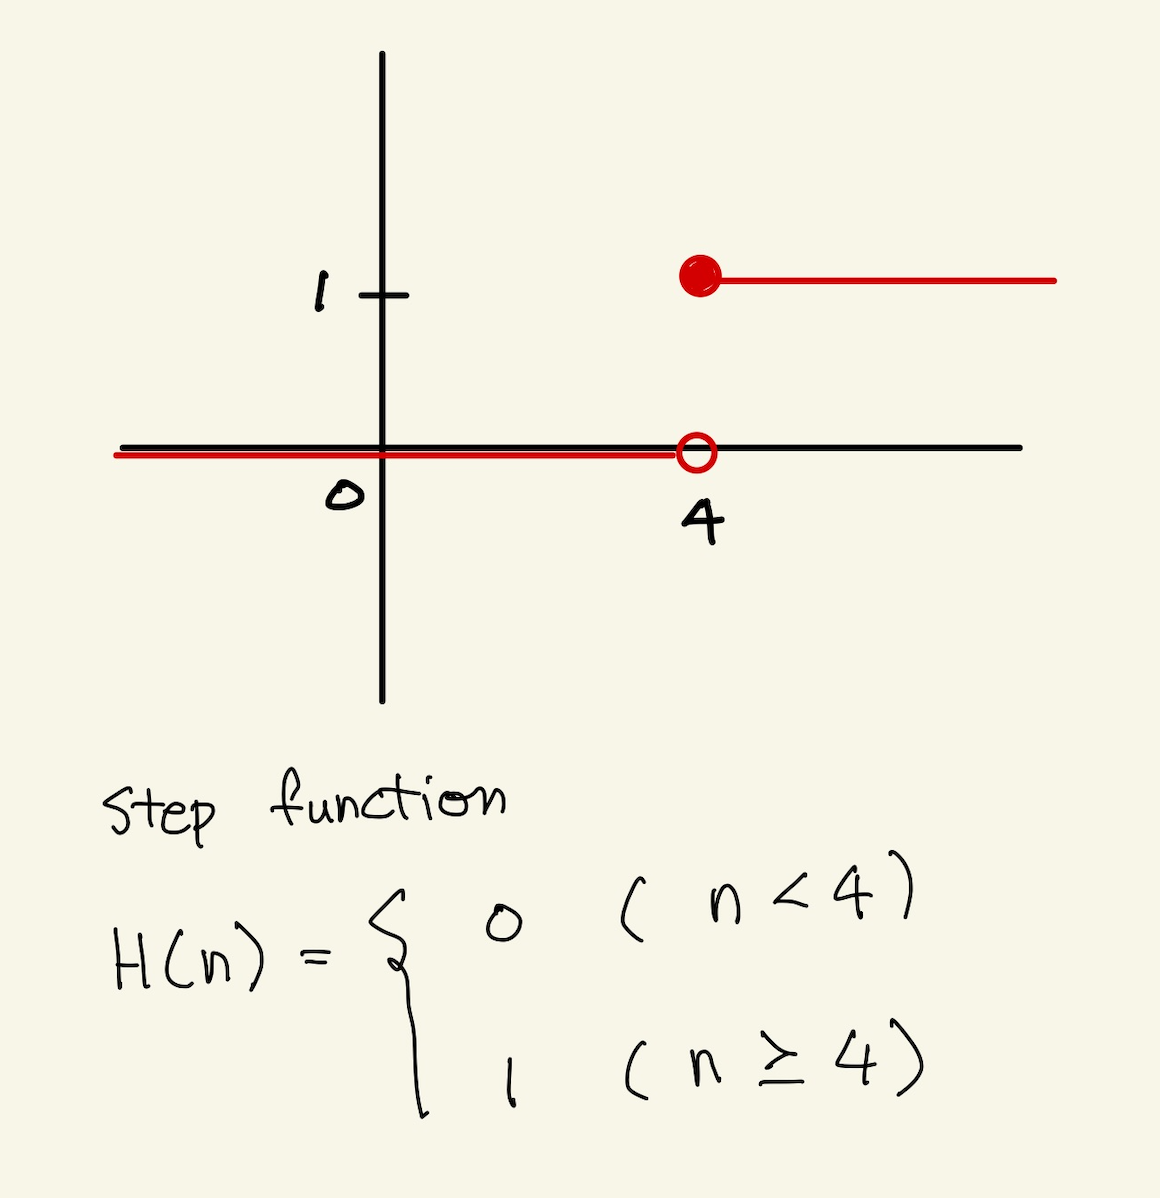 1
0
4
Step function
H(n) = { 0 ( n < 4 )
1 ( n ≥ 4 )